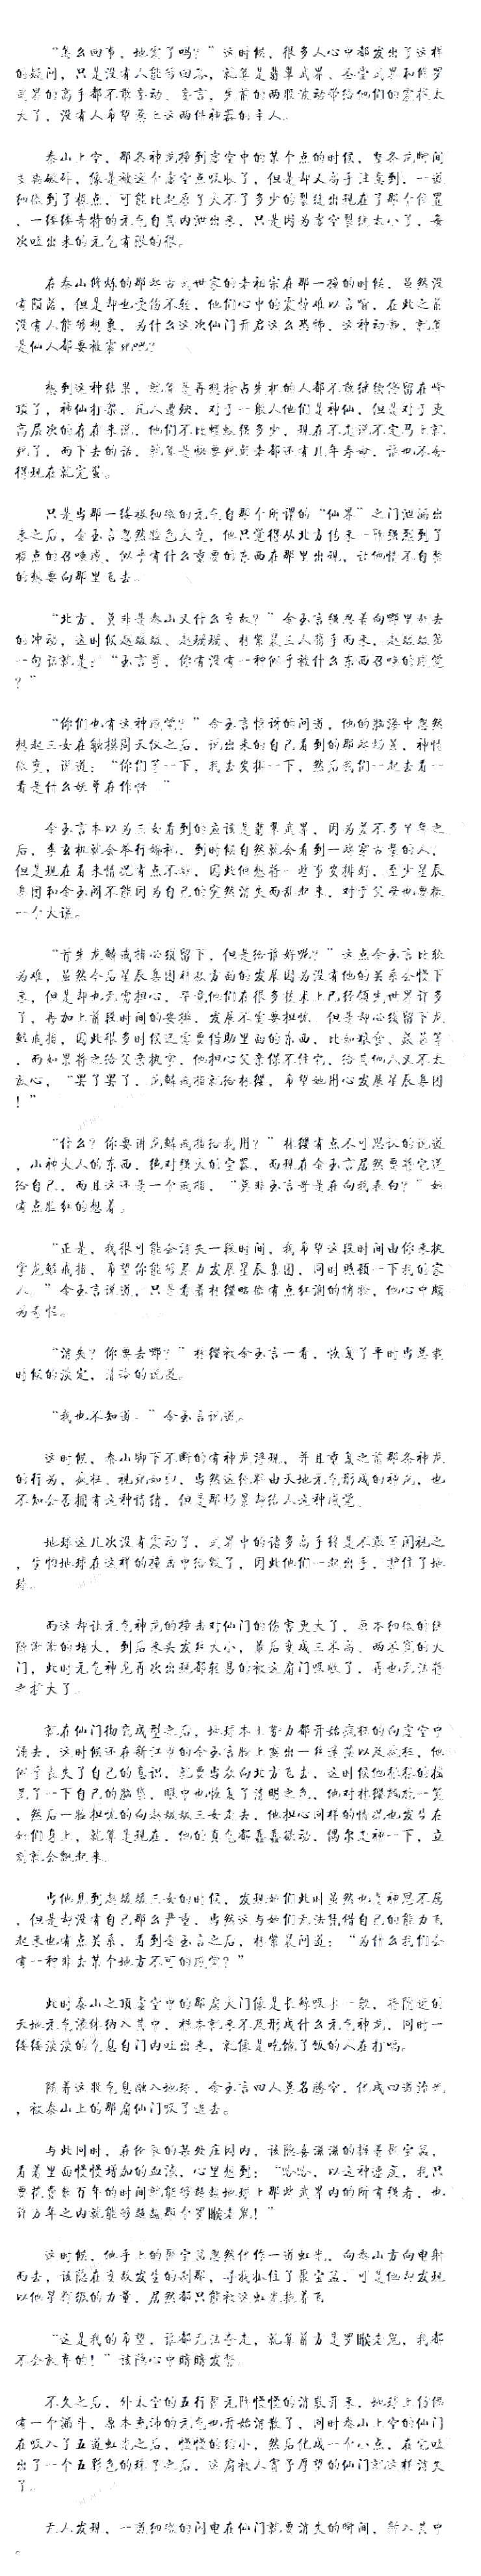 “怎么回事，地震了吗？”这时候，很多人心中都发出了这样
的疑问，只是没有人能够回答，就算是翡翠武界、圣堂武界和修罗
武界的高手都不敢妄动、妄言，先前的两股波动带给他们的震撼太
大了，没有人希望惹上这两件神器的主人。
泰山上空，那条神龙撞到虚空中的某个点的时候，整条龙瞬间
的
次吐出来的元气有限的很。
在泰山修炼的那些古武世家的老祖宗在那一撞的时候，虽然没
有陨落，但是却也受伤不轻，他们心中的震惊难以言喻，在此之前
没有人能够想象，为什么这次仙门开启这么恐怖，这种动静，就算
是仙人都要被震死吧？
想到这种结果，就算是再想抢占先机的人都不敢继续停留在峰
顶了，神仙打架，凡人遭殃，对于一般人他们是神仙，但是对于更
高层次的存在来说，他们不比蝼蚁强多少，现在不走说不定马上就
死了，而下去的话，就算是快要死的老都还有几年寿命，谁也不舍
得现在就完蛋。
只是当那一缕极细微的元气自那个所谓的“仙界”之门泄漏出
来之后，金玉言忽然脸色大变，他只觉得从北方传来一阵强烈到了
极点的召唤感，似乎有什么重要的东西在那里出现，让他情不自禁
的想要向那里飞去。
“北方，莫非是泰山又什么变故？”金玉言强忍着向哪里却去
的冲动，这时候赵媛媛、赵瑶瑶、林紫晨三人携手而来，赵媛媛第
一句话就是：“玉言哥，你有没有一种似乎被什么东西召唤的感觉
？”
“你们也有这种感觉？”金玉言惊讶的问道，他的脑海中忽然
想起三女在触摸周天仪之后，说出来的自己看到的那些场景，神情
微变，说道：“你们等一下，我去安排一下，然后我们一起去看一
看是什么妖孽在作怪。”
金玉言本以为三女看到的应该是翡翠武界，因为差不多半年之
后，李玄机就会举行婚礼，到时候自然就会看到一些穿古装的人，
但是现在看来情况有点不妙，因此他想将一些事安排好，至少星辰
集团和金玉阁不能因为自己的突然消失而乱起来，对于父母也要撒
一个大谎。
“首先龙鳞戒指必须留下，但是给谁好呢？”这点金玉言比较
为难，虽然今后星辰集团科技方面的发展因为没有他的关系会慢下
来，但是却也无需担心，毕竟他们在很多技术上已经领先世界许多
了，再加上前段时间的安排，发展不需要担忧，但是却必须留下龙
鳞戒指，因此很多时候还需要借助里面的东西，比如粮食、蔬菜等
，而如果将之给父亲执掌，他担心父亲保不住它，给其他人又不太
放心，“罢了罢了，龙鳞戒指就给林樱，希望她用心发展星辰集团
！”
“什么？你要讲龙鳞戒指给我用？”林樱有点不可思议的说道
给自己，而且这还是一个戒指，“莫非玉言哥是在向我表白？”她
有点脸红的想着。
“正是，我很可能会消失一段时间，我希望这段时间由你来执
掌龙鳞戒指，希望你能够努力发展星辰集团，同时照顾一下我的家
人。”金玉言说道，只是看着林樱略微有点红润的俏脸，他心中颇
为奇怪。
“消失？你要去哪？”林樱被金玉言一看，恢复了平时当总裁
时候的淡定，清冷的说道。
“我也不知道。”金玉言说道。
这时候，泰山脚下不断的有神龙浮现，并且重复之前那条神龙
的行为，疯狂、视死如归，当然这条料由天地元气形成的神龙，也
不知会否拥有这种情绪，但是那场景却给人这种感觉。
地球这几次没有震动了，武界中的诸多高手转是不敢等闲视之
，生怕地球在这样的撞击中给毁了，因此他们一起出手，护住了地
球。
而这却让元气神龙的撞击对仙门的伤害更大了，原本细微的缝
隙渐渐的增大，到后来头发丝大小，最后变成三米高、两米宽的大
门，此时元气神龙再次出现都轻易的被这扇门吸收了，再也无法将
之扩大了。
就在仙门彻底成型之后，地球本土势力都开始疯狂的向虚空中
涌去，这时候还在新江市的金玉言脸上露出一丝迷茫以及疯狂，他
似乎丧失了自己的意识，就要当众向北方飞去，这时候他狠狠的摇
晃了一下自己的脑袋，眼中也恢复了清明之色，他对林樱抱歉一笑
，然后一脸担忧的向赵媛媛三女走去，他担心同样的情况也发生在
她们身上，就算是现在，他的真气都蠢蠢欲动，偶尔走神一下，立
刻就会飘起来。
当他见到赵媛媛三女的时候，发现她们此时虽然也是神思不属
，但是却没有自己那么严重，当然这与她们无法凭借自己的能力飞
起来也有点关系，看到金玉言之后，林紫晨问道：“为什么我们会
有一种非去某个地方不可的感觉？”
此时泰山之顶虚空中的那扇大门像是长鲸吸水一般，将附近的
天地元气流体纳入其中，根本就来不及形成什么元气神龙，同时一
缕缕淡淡的气息自门内吐出来，就像是吃饱了饭的人在打嗝。
随着这股气息融入地球，金玉言四人莫名腾空，化成四道流光
，被泰山上的那扇仙门吸了进去。
与此同时，在伦敦的某处庄园内，该隐喜滋滋的抱着聚宝盆，
看着里面慢慢增加的血液，心里想到：“哈哈，以这种速度，我只
要花费数百年的时间就能够超越地球上那些武界内的所有强者，也
许万年之内就能够超越那个罗睺老鬼！”
这时候，他手上的聚宝盆忽然化作一道虹光，向泰山方向电射
而去，该隐在变故发生的刹那，寻找抓住了聚宝盆，可是他却发现
以他星辉级的力量，居然都只能被这虹光拖着飞
“这是我的希望，谁都无法夺走，就算前方是罗睺老鬼，我都
不会放弃的！”该隐心中暗暗发誓。
不久之后，外太空的五行聚元阵慢慢的消散开来，地球上仿佛
有一个漏斗，原本充沛的元气也开始消散了，同时泰山上空的仙门
在吸入了五道虹光之后，慢慢的缩小，然后化成一个小点，在它吐
出了一个五彩色的珠子之后，这扇被人寄予厚望的仙门就这样消失
了。
无人发现，一道细微的闪电在仙门就要消失的瞬间，射入其中
。